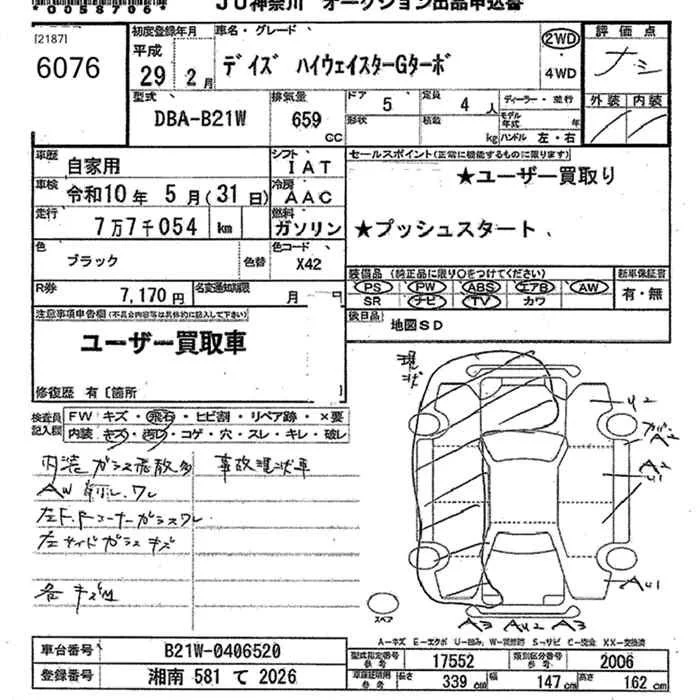 *0058706*
JU神奈川 オークション出品申込書
[2187]
6076
初度登録年月
平成
29年2月
車名・グレード
デイズ ハイウェイスターGターボ
2WD
・
4WD
評価点
ナシ
外装 内装
型式
DBA-B21W
排気量
659
CC
ドア 5
定員 4人
形状
積載 kg
ディーラー・並行
モデル年式 年
ハンドル 左・右
車歴 自家用
シフト IAT
車検 令和10年5月(31日)
冷房 AAC
走行 7万7千054 km
燃料 ガソリン
色 ブラック
色替
色コード X42
R券 7,170円
名変通知期限 月
セールスポイント(正常に機能するものに限ります)
★ユーザー買取り
★プッシュスタート
装備品 (純正品に限り○をつけてください)
PS PW ABS エアB AW
SR ナビ TV カワ
新車保証書
有・無
後日品
地図SD
注意事項申告欄(不具合内容等は具体的に記入して下さい)
ユーザー買取車
修復歴 有[箇所
検査員
記入欄
FW キズ・飛石・ヒビ割・リペア跡・×要
内装 キズ・汚レ・コゲ・穴・スレ・キレ・破レ
内装ガラス飛散多
事故現状車
左F.Rコーナーガラスワレ
左サイドガラスキズ
現状
A2
A3
A3
スペア
A-キズ E-エクボ U-凹み W-補修跡 S-サビ C-腐食 XX-交換済
車台番号 B21W-0406520
登録番号 湘南 581 て 2026
型式指定番号
参考
17552
類別区分番号
参考
2006
車庫証明用
参考
長さ 339cm
幅 147cm
高さ 162cm